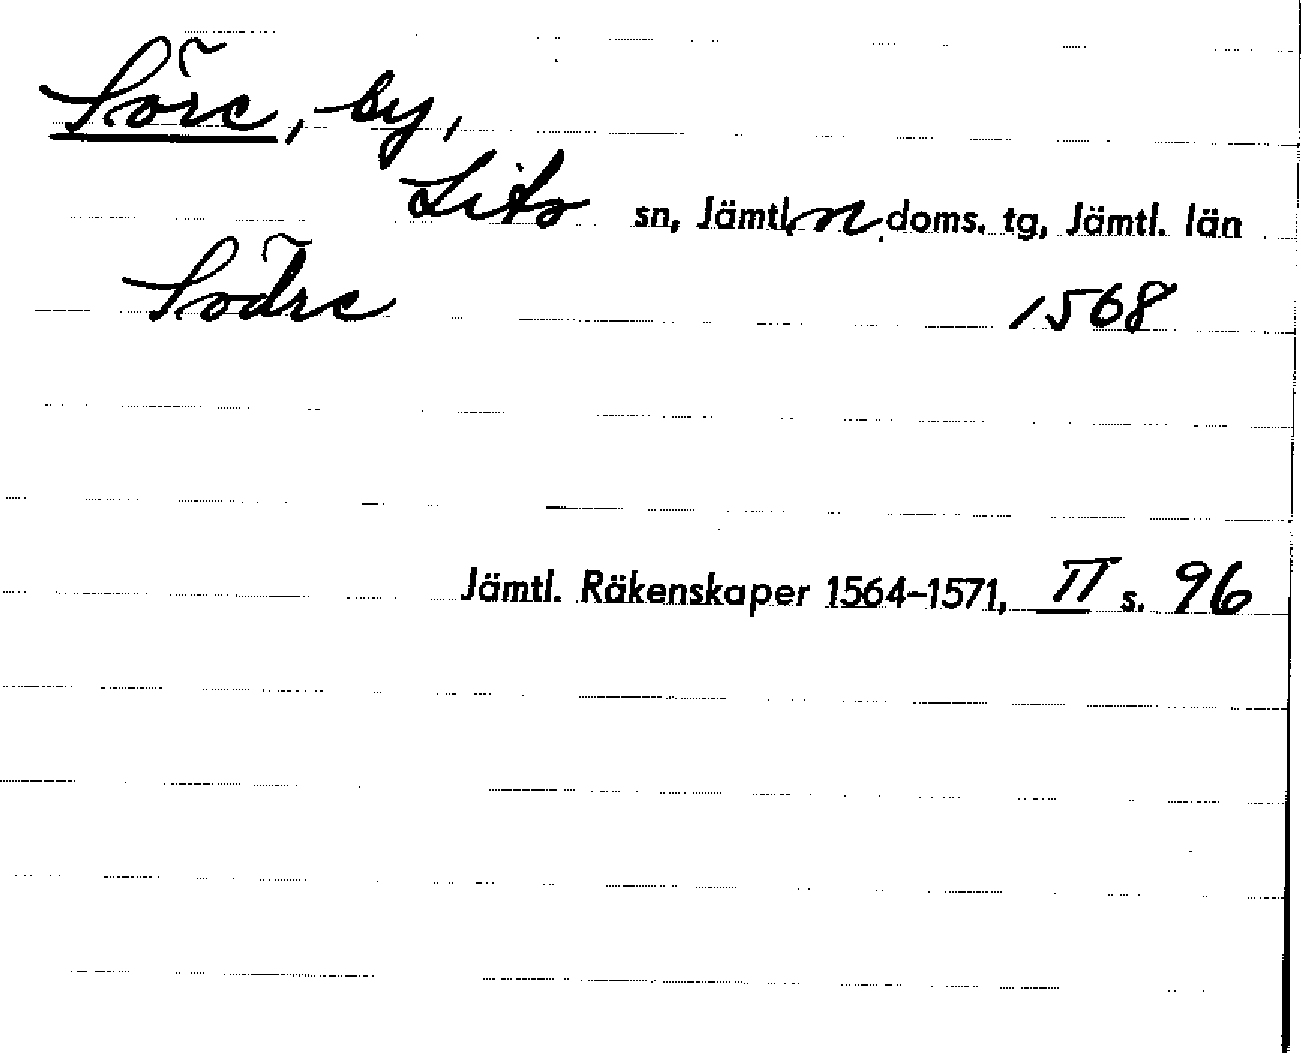 Söre, by,
Lits sn, Jämtl. n. doms. tg, Jämtl. län
Södre 1568
Jämtl. Räkenskaper 1564–1571, II s. 96